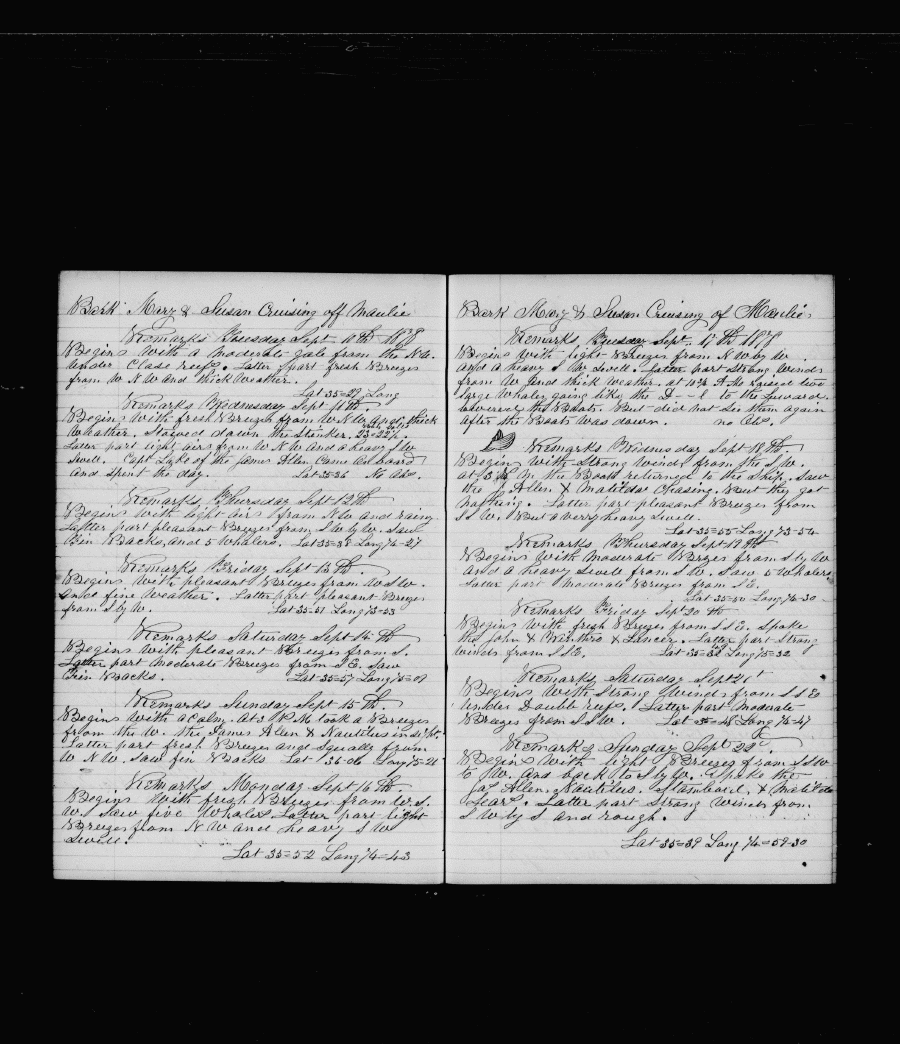 Bark Mary & Susan Cruising off Maulie
Remarks Tuesday Sept 10th 1878
Begins with a moderate gale from the N.W.
under Close reefs. Latter part fresh Breezes
from W N W and thick Weather.
Lat 35=29 Long
Remarks Wednesday Sept 11th.
Begins with fresh Breezes from W.N.W. and thick
Weather. Stowed down the
Latter part light airs from W N W and a heavy S W
Swell. Capt Lapham of the James Allen Came on board
and spent the day. Lat 35=36 No Obs.
Remarks Thursday Sept 12th
Begins with light airs from N.W. and rainy
Latter part pleasant Breezes from S W by W. Saw
Fin Backs, and 5 Whalers. Lat 35=38 Long 74=27
Remarks Friday Sept 13th.
Begins with pleasant Breezes from W S W.
and fine Weather. Latter part pleasant Breezes
from S by W. Lat 35=51 Long 73=53
Remarks Saturday Sept 14th
Begins with pleasant Breezes from S.
Latter part moderate Breezes from S E. Saw
Fin Backs. Lat 35=57 Long 75=09
Remarks Sunday Sept 15th.
Begins with a calm. At 3 P.M. took a Breeze
from the W. the James Allen & Nautilus in sight.
Latter part fresh Breezes and Squally from
W N W. Saw fin Backs Lat 36=06 Long 75=21
Remarks Monday Sept 16th.
Begins with fresh Breezes from W. S.
W. Saw five Whales Latter part light
Breezes from N W and heavy S W
Swell.
Lat 35=52 Long 74=43
Bark Mary & Susan Cruising of Maulie
Remarks Tuesday Sept. 17th 1878
Begins with light Breezes from N W by W.
and a heavy S W Swell. Latter part Strong Winds
from W and thick Weather. at 10½ A.M. raised two
large Whales going like the D--l to the leeward.
lowered the Boats. But did not See them again
after the Boats was down. no Obs.
Remarks Wednesday Sept 18th.
Begins with Strong Winds from the S W.
at P M the Boats returned to the Ship. Saw
the J. Allen & Matilda Chasing. But they got
nothing. Latter part pleasant Breezes from
S S W. But a very heavy Swell.
Lat 35=55 Long 73=54
Remarks Thursday Sept 19th
Begins with moderate Breezes from S by W
and a heavy Swell from S W. Saw 5 Whalers
Latter part moderate Breezes from S E.
Lat 35=50 Long 74=30
Remarks Friday Sept 20th
Begins with fresh Breezes from S S E. Spoke
the John & Winthro & Lancer. Latter part Strong
winds from S S E. Lat 35=32 Long 75=32
Remarks Saturday Sept 21st
Begins with Strong Winds from S S E
under Double reefs. Latter part moderate
Breezes from S S W. Lat 35=48 Long 75=47
Remarks Sunday Sept 22d.
Begins with light Breezes from S S W
to W. and back to S by W. Spoke the
Jas Allen, Nautilus, Stamboul, & Matilda
Sears. Latter part Strong Winds from
S W by S and rough.
Lat 35=39 Long 74=59-30